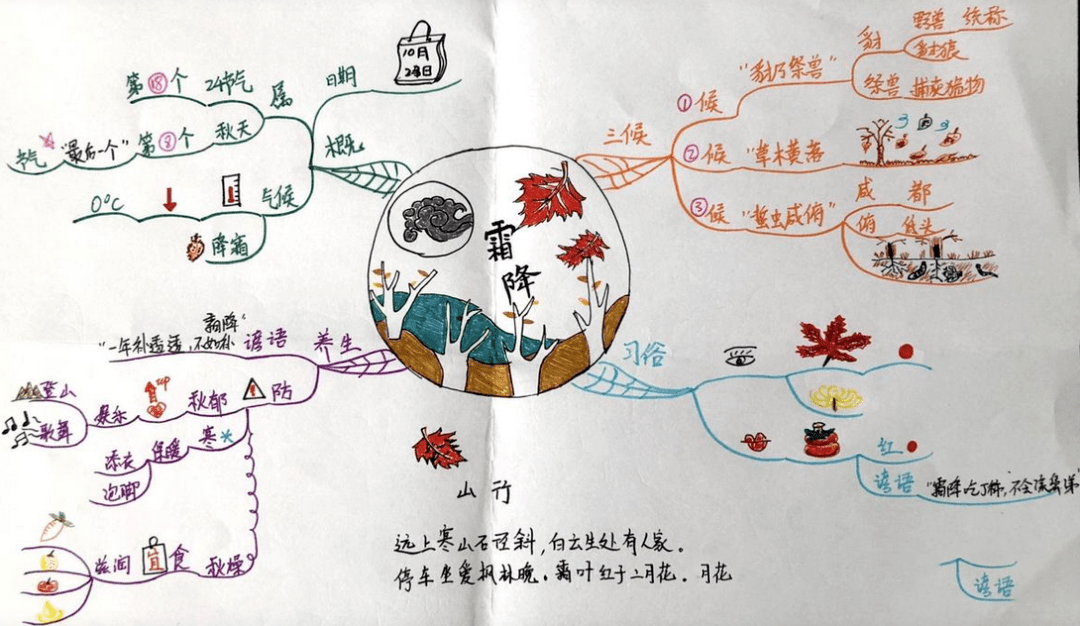 霜降
10月
日
日期
概
属
24节气
第⑱个
秋天
第③个
"最后一个"
节气
气候
0℃
降霜
三候
①候 "豺乃祭兽"
豺
野兽 统称
豺狼
祭兽 捕获猎物
②候 "草木黄落
③候 "蛰虫咸俯"
咸 都
俯 低头
养生
谚语
霜降"
"一年补透透,不如补
防
秋郁
up
娱乐
登山
歌舞
寒
保暖
添衣
泡脚
秋燥
食
宜
滋润
习俗
红
谚语
"霜降吃丁柿,不会流鼻涕
谚语
山行
远上寒山石径斜,白云生处有人家。
停车坐爱枫林晚,霜叶红于二月花。月花